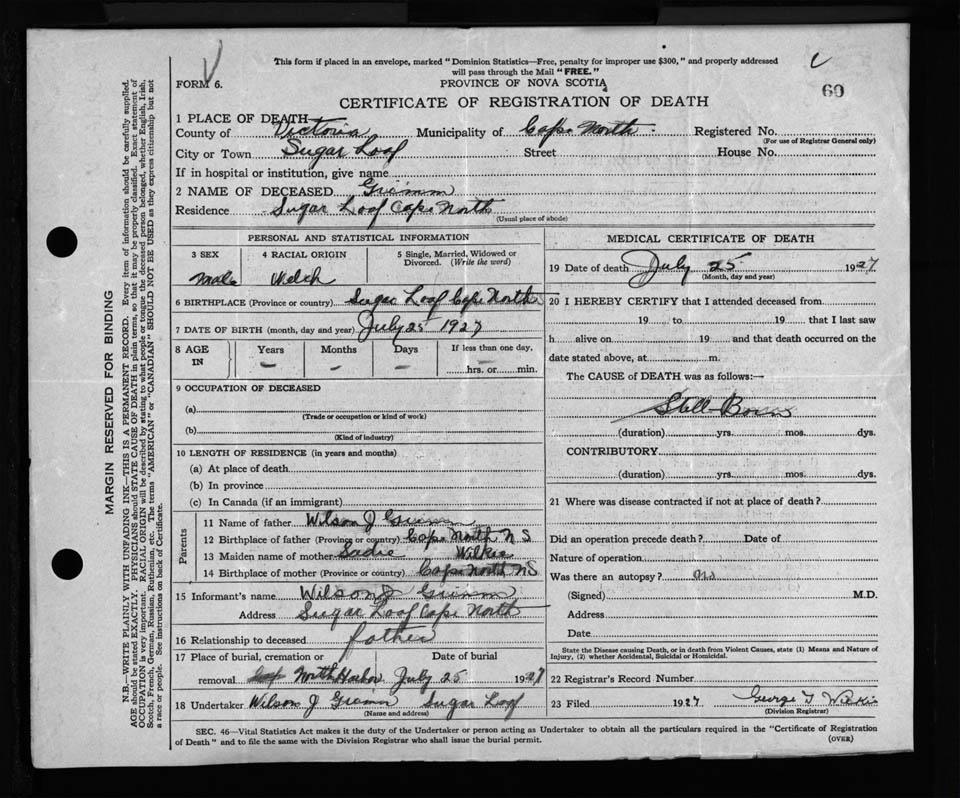 This form if placed in an envelope, marked "Dominion Statistics—Free, penalty for improper use $300," and properly addressed
will pass through the Mail "FREE."
FORM 6.
PROVINCE OF NOVA SCOTIA
60
CERTIFICATE OF REGISTRATION OF DEATH
1 PLACE OF DEATH
County of Victoria Municipality of Cape North Registered No.
(For use of Registrar General only)
City or Town Sugar Loaf Street House No.
If in hospital or institution, give name
2 NAME OF DECEASED
Residence Sugar Loaf Cape North
(Usual place of abode)
PERSONAL AND STATISTICAL INFORMATION
3 SEX 4 RACIAL ORIGIN 5 Single, Married, Widowed or Divorced. (Write the word)
Male Welch
6 BIRTHPLACE (Province or country) Sugar Loaf Cape North
7 DATE OF BIRTH (month, day and year) July 25 1927
8 AGE IN Years Months Days If less than one day,
— — — — hrs. or min.
9 OCCUPATION OF DECEASED
(a)
(Trade or occupation or kind of work)
(b)
(Kind of industry)
10 LENGTH OF RESIDENCE (in years and months)
(a) At place of death
(b) In province
(c) In Canada (if an immigrant)
Parents
11 Name of father Wilson J
12 Birthplace of father (Province or country) Cape North N S
13 Maiden name of mother Sadie Wilkie
14 Birthplace of mother (Province or country) Cape North NS
15 Informant's name Wilson J
Address Sugar Loaf Cape North
16 Relationship to deceased father
17 Place of burial, cremation or removal Date of burial
North Harbor July 25 1927
18 Undertaker Wilson J Sugar Loaf
(Name and address)
MEDICAL CERTIFICATE OF DEATH
19 Date of death July 25 1927
(Month, day and year)
20 I HEREBY CERTIFY that I attended deceased from
19 to 19 that I last saw
h alive on 19 and that death occurred on the
date stated above, at m.
The CAUSE of DEATH was as follows:—
Still-Born
(duration) yrs. mos. dys.
CONTRIBUTORY
(duration) yrs. mos. dys.
21 Where was disease contracted if not at place of death?
Did an operation precede death? Date of
Nature of operation
Was there an autopsy? no
(Signed) M.D.
Address
Date
State the Disease causing Death, or in death from Violent Causes, state (1) Means and Nature of
Injury, (2) whether Accidental, Suicidal or Homicidal.
22 Registrar's Record Number
23 Filed 1927 George
(Division Registrar)
SEC. 46—Vital Statistics Act makes it the duty of the Undertaker or person acting as Undertaker to obtain all the particulars required in the "Certificate of Registration
of Death" and to file the same with the Division Registrar who shall issue the burial permit.
(OVER)
MARGIN RESERVED FOR BINDING
N.B.—WRITE PLAINLY WITH UNFADING INK—THIS IS A PERMANENT RECORD. Every item of information should be carefully supplied.
AGE should be stated EXACTLY. PHYSICIANS should STATE CAUSE OF DEATH in plain terms, so that it may be properly classified. Exact statement of
OCCUPATION is very important. RACIAL ORIGIN will be described by stating to what people or tongue the deceased person belonged, whether English, Irish,
Scotch, French, German, Russian, Ruthenian, etc. The terms "AMERICAN" or "CANADIAN" SHOULD NOT BE USED as they express citizenship but not
a race or people. See instructions on back of Certificate.